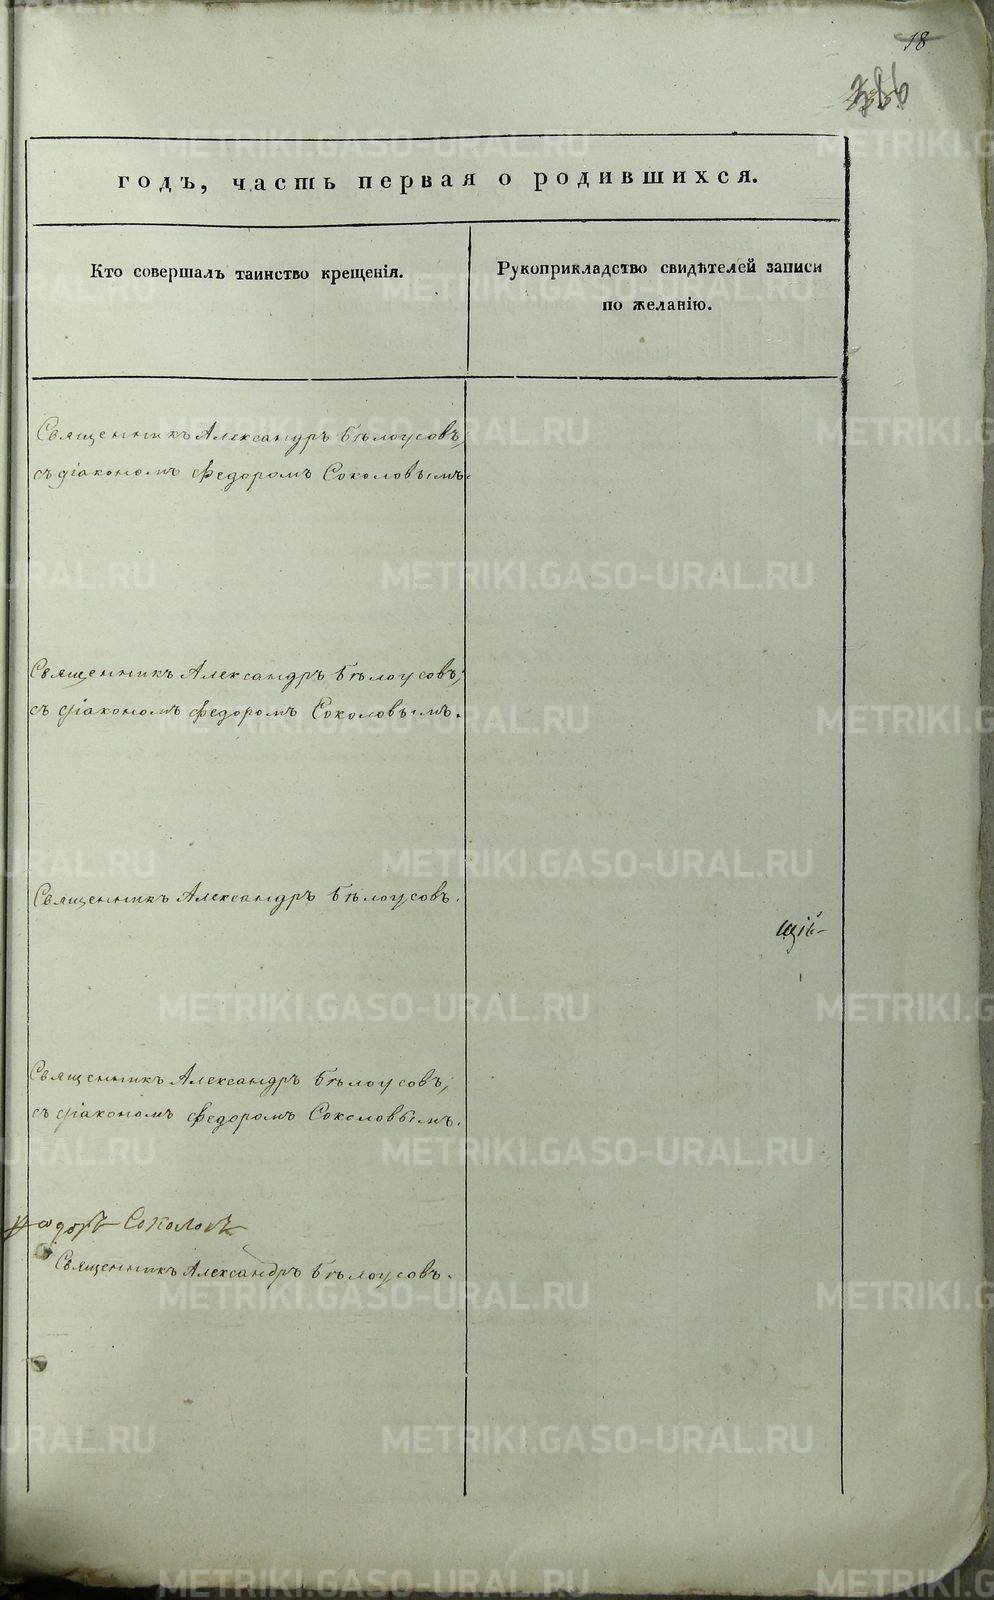 18
386
годъ, часть первая о родившихся.
Кто совершалъ таинство крещенія.
Рукоприкладство свидѣтелей записи
по желанію.
Священникъ Александръ Бѣлоусовъ,
съ діакономъ Федоромъ Соколовымъ.
Священникъ Александръ Бѣлоусовъ,
съ діакономъ Федоромъ Соколовымъ.
Священникъ Александръ Бѣлоусовъ.
щій
Священникъ Александръ Бѣлоусовъ,
съ діакономъ Федоромъ Соколовымъ.
Соколовъ
Священникъ Александръ Бѣлоусовъ.
METRIKI.GASO-URAL.RU